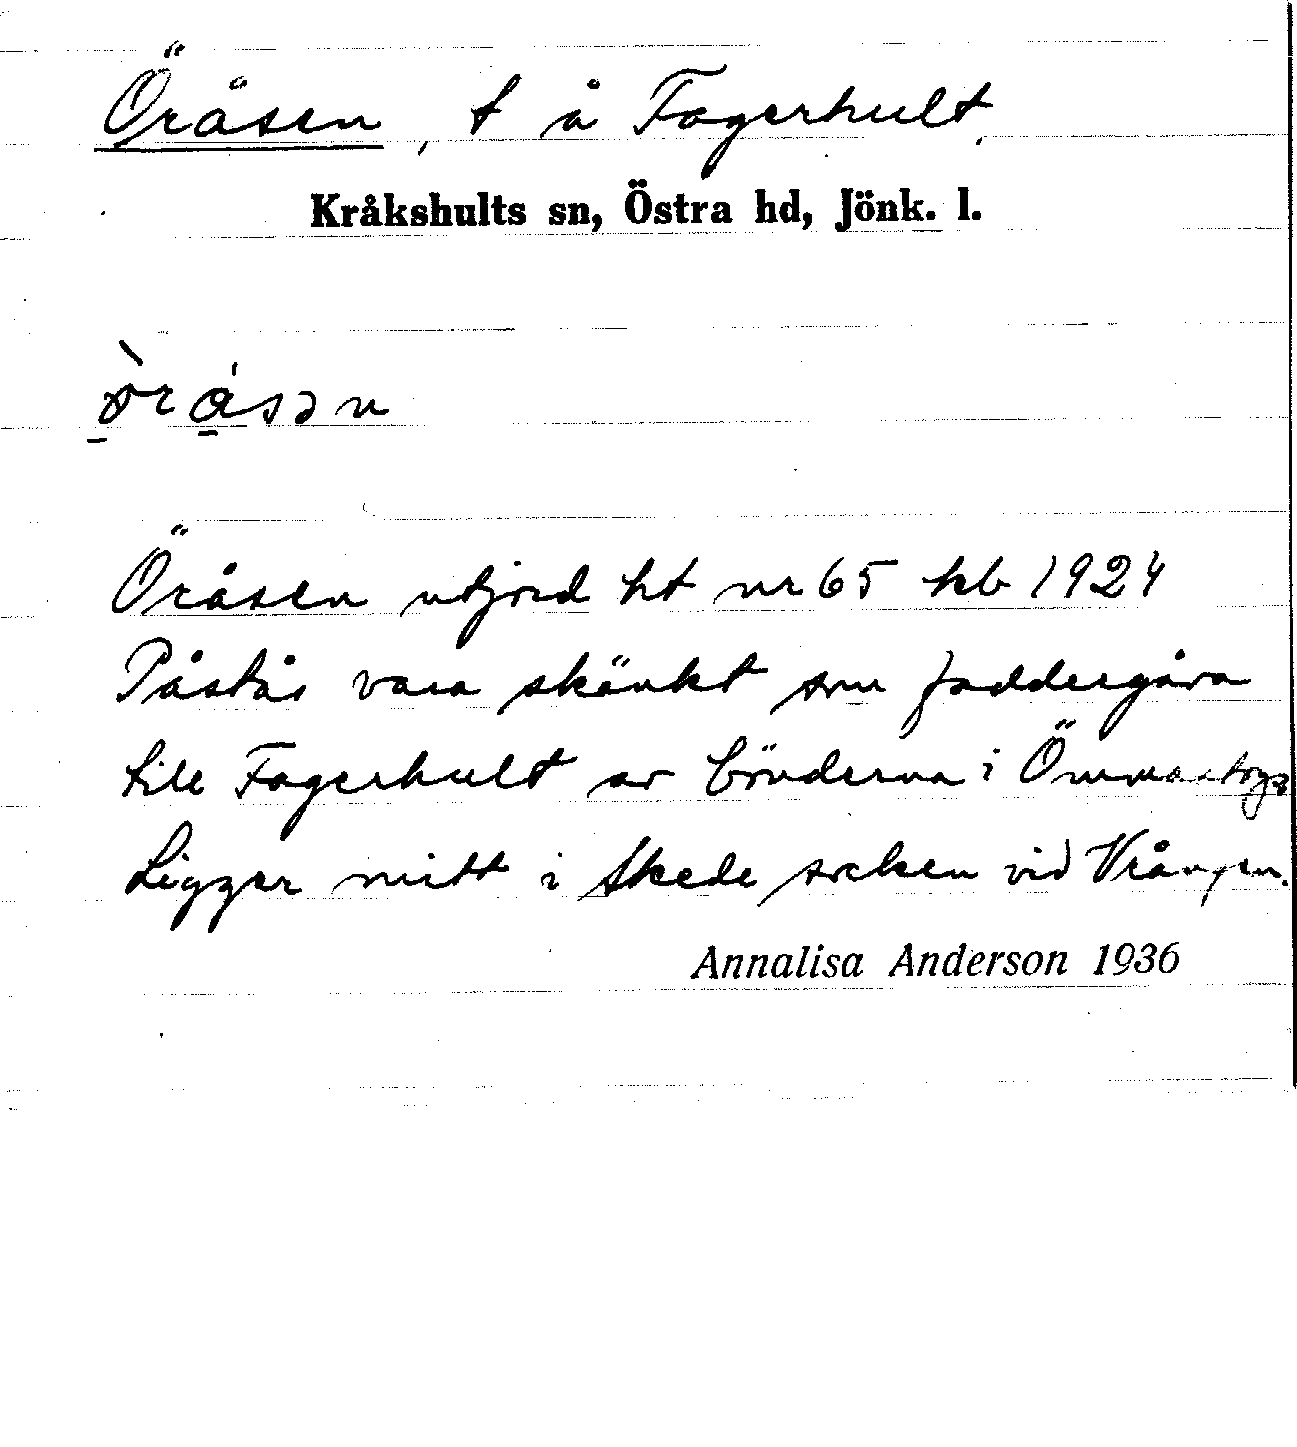 Öråsen, t å Fagerhult.
Kråkshults sn, Östra hd, Jönk. l.
Öråsen utjord ht nr 65 kb 1924
Påstås vara skänkt som faddergåva
till Fagerhult av bönderna i
Ligger mitt i Skede socken vid Vrången.
Annalisa Anderson 1936